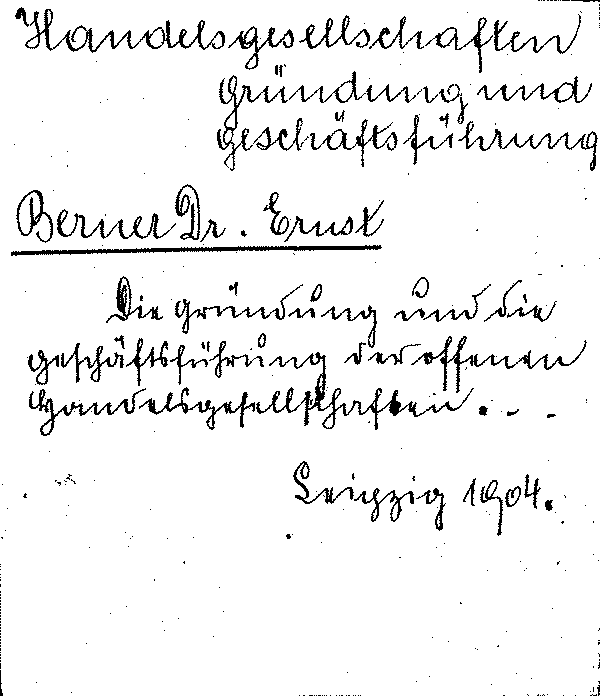 Handelsgesellschaften
Gründung und
geschäftsführung
Berner Dr. Ernst
Die Gründung und die
geschäftsführung der offenen
Handelsgesellschaften. . .
Leipzig 1904.